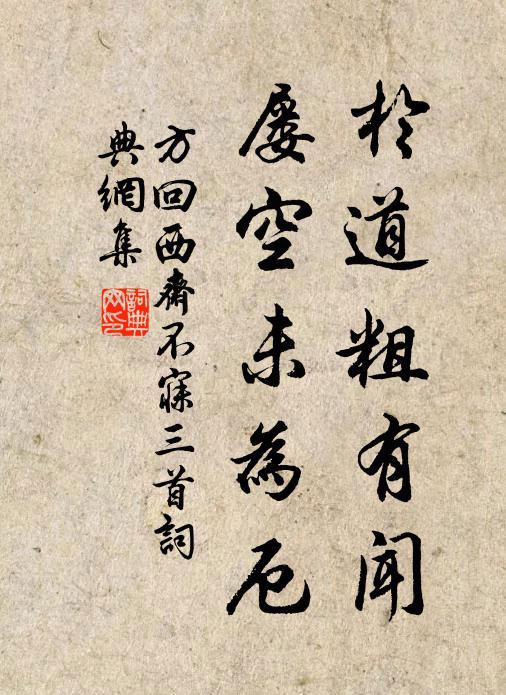 於道粗有聞
屢空未為厄
方回西齋不寐三首詞
典網集
詞典
网印